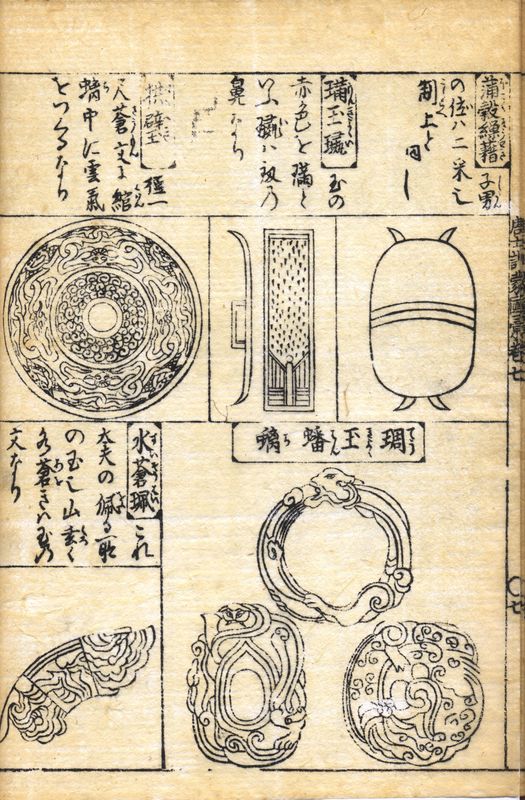 蒲穀繅藉 子男
の位ハ二采也
制上と同し
璊玉瓛 玉の
赤色を璊と
いふ瓛ハ𠮷の
鼻なり
拱璧 径一
尺蒼文を綰
螭中に雲氣
をつくるなり
琱玉蟠螭
水蒼珮 これ
大夫の佩る所
の玉也山玄く
水蒼きハ玉の
文なり
唐土訓蒙圖彙卷七
〇七